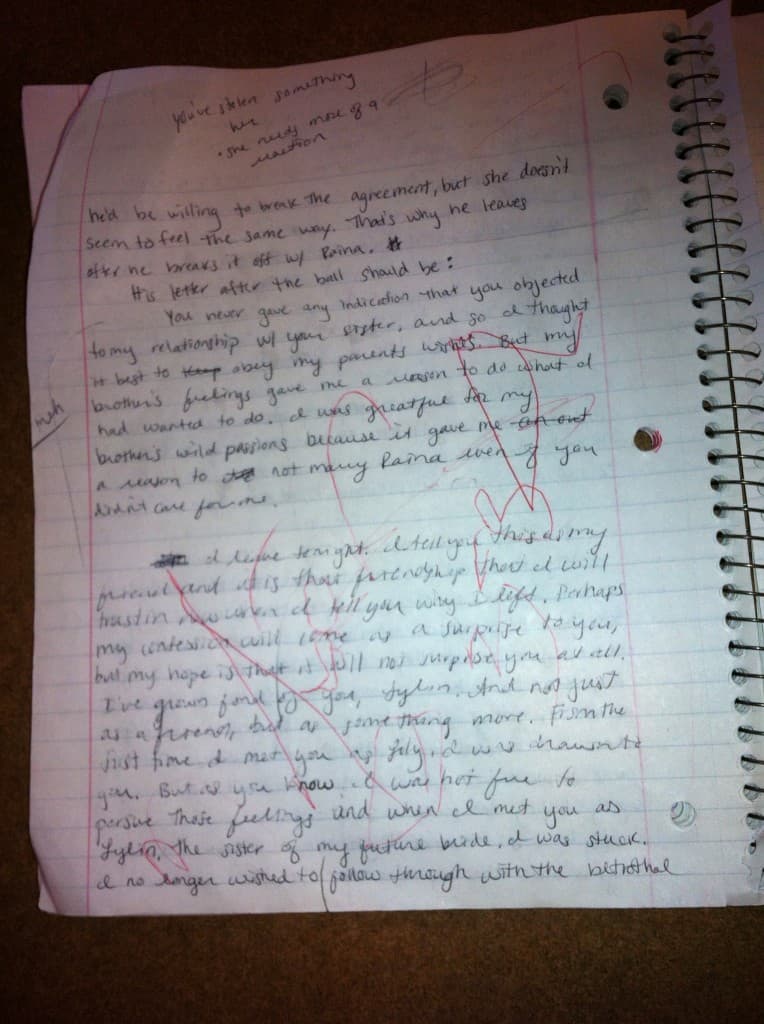 you've stolen something
her
• she needs more of a
reaction
he'd be willing to break the agreement, but she doesn't
seem to feel the same way. That's why he leaves
after he breaks it off w/ Raina.
His letter after the ball should be:
You never gave any indication that you objected
to my relationship w/ your sister, and so I thought
it best to keep obey my parents wishes. But my
brother's feelings gave me a reason to do what I
meh
had wanted to do. I was greatful for my
brother's wild passions because it gave me an out
a reason to not marry Raina even if you
didn't care for me.
I leave tonight. I tell you this as my
friend and it is that friendship that I will
trust in now when I tell you why I left. Perhaps
my confession will come as a surprise to you,
but my hope is that it will not surprise you at all.
I've grown fond of you, Sylin. And not just
as a friend, but as something more. From the
first time I met you as Lily, I was drawn to
you. But as you know, I was not free to
persue those feelings and when I met you as
Sylin, the sister of my future bride, I was stuck.
I no longer wished to follow through with the betrothal